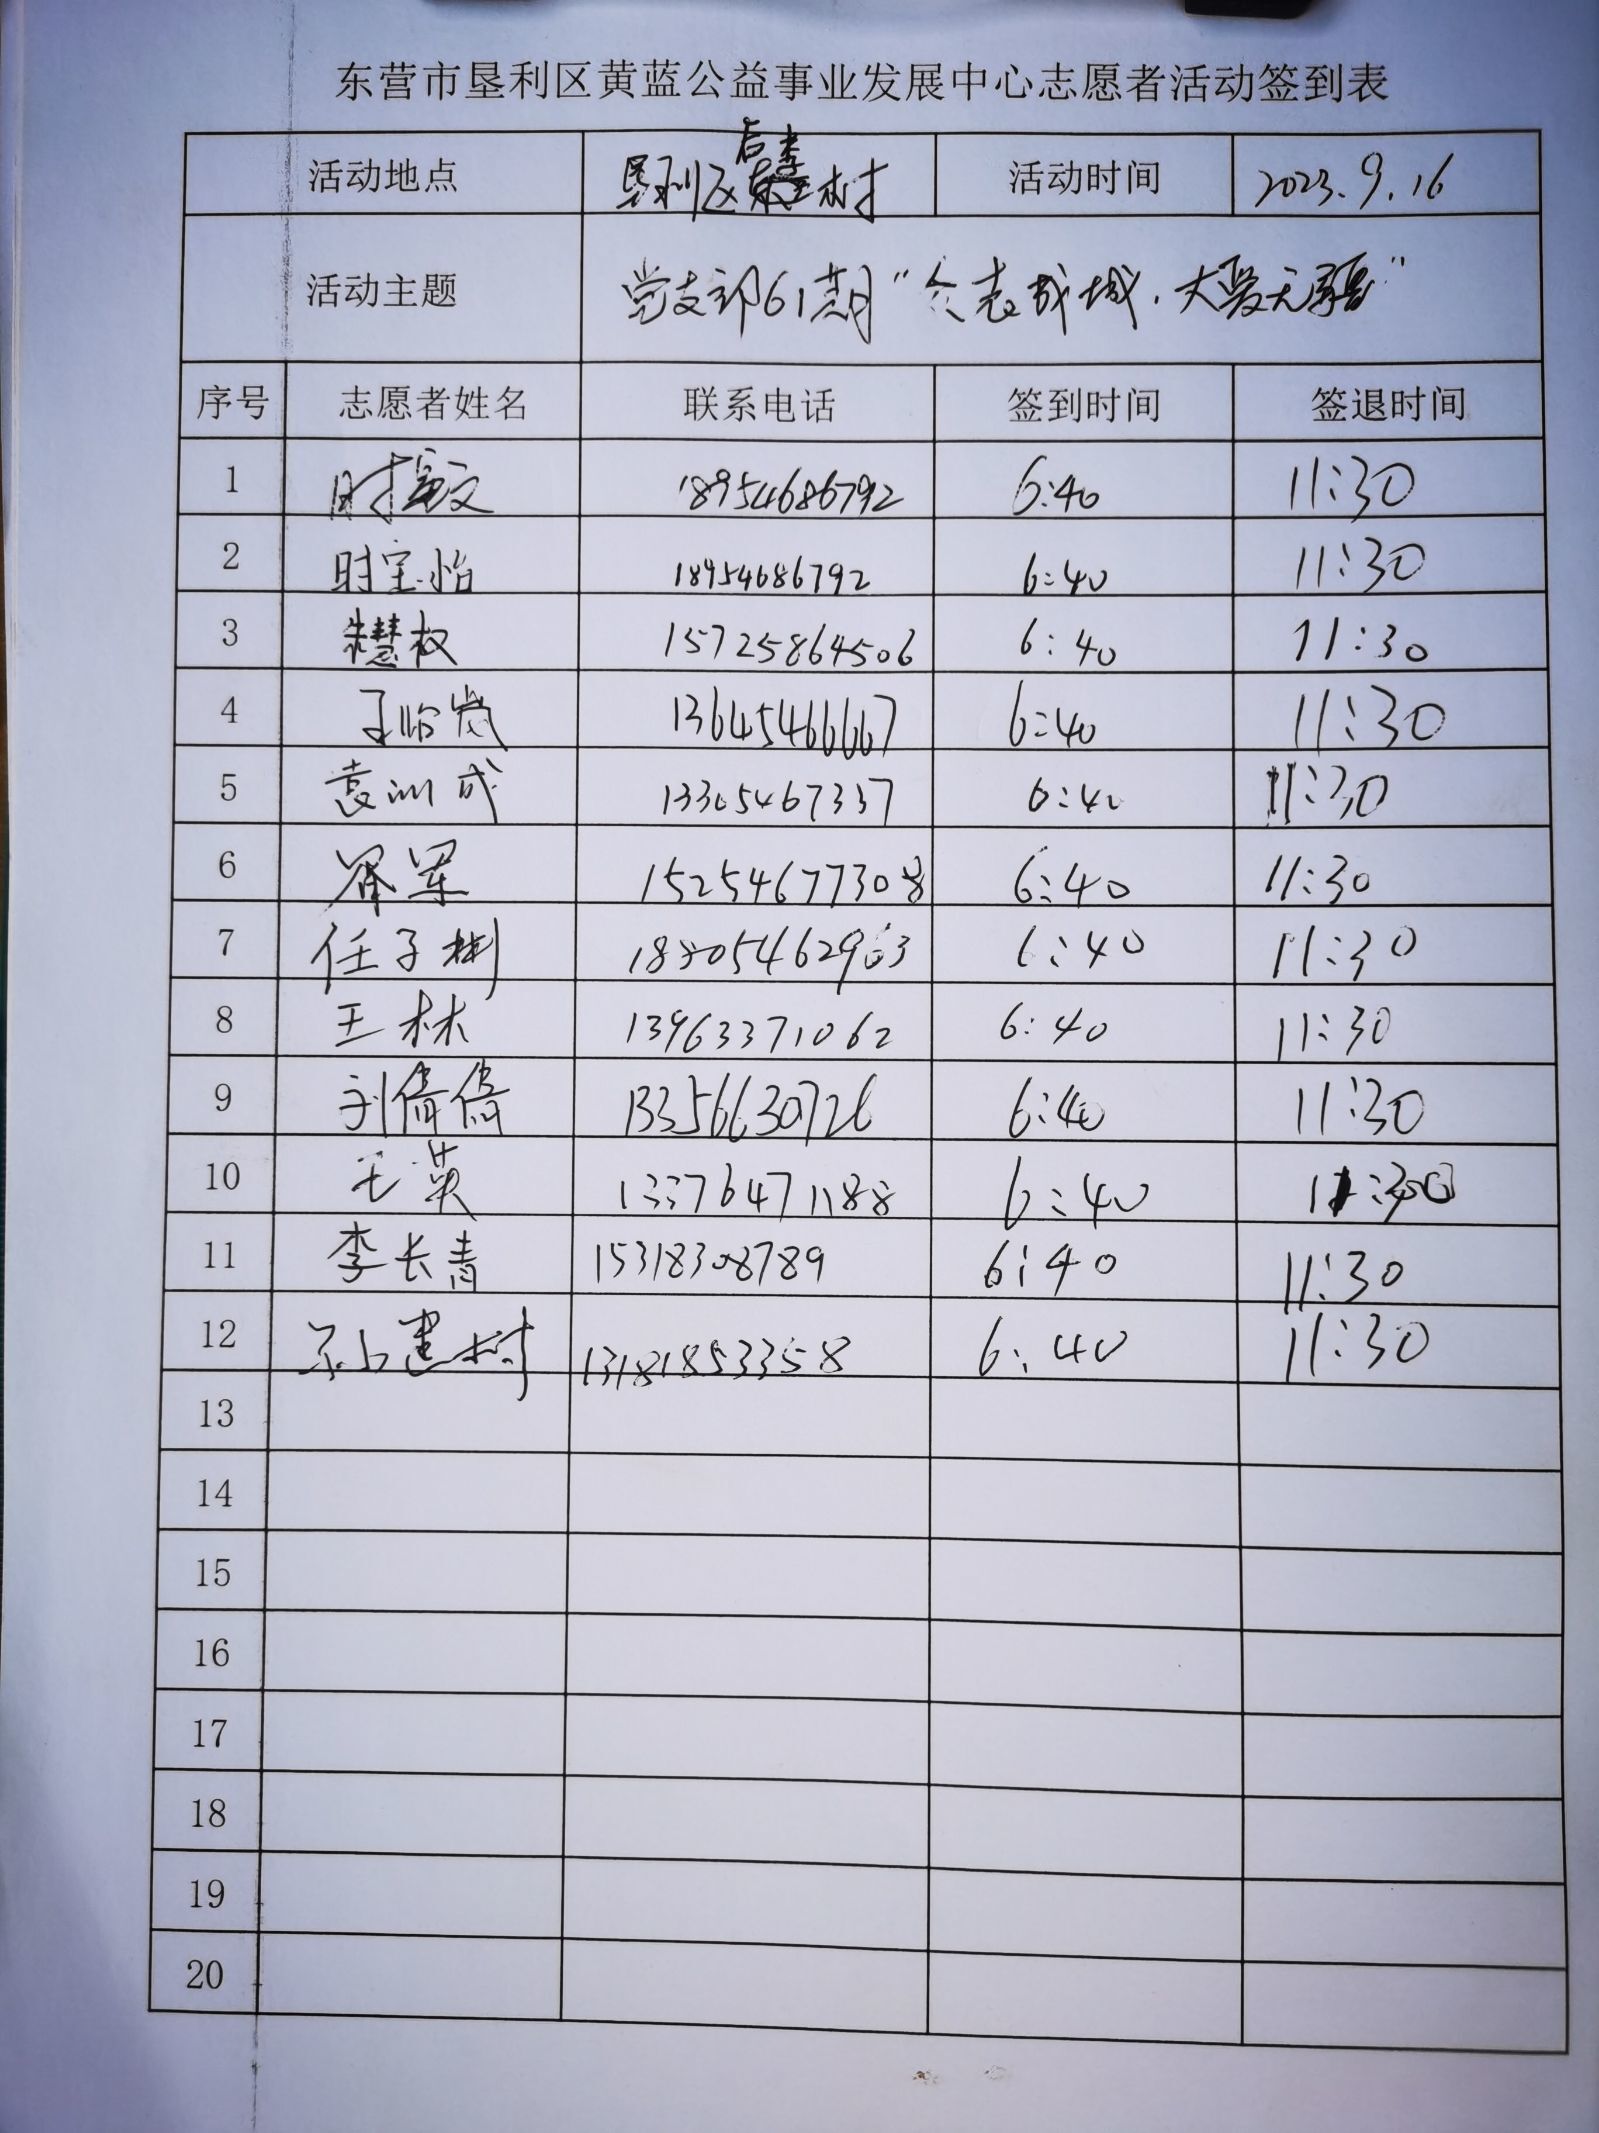 东营市垦利区黄蓝公益事业发展中心志愿者活动签到表
活动地点 垦利区后李村 活动时间 2023.9.16
活动主题 党支部61期“众志成城，大爱无疆”
序号 志愿者姓名 联系电话 签到时间 签退时间
1 18954686792 6:40 11:30
2 时宝怡 18954686792 6:40 11:30
3 15725864506 6:40 11:30
4 13645466667 6:40 11:30
5 袁训成 13305467337 6:40 11:30
6 15254677308 6:40 11:30
7 任子彬 6:40 11:30
8 王林 13963371062 6:40 11:30
9 刘倩倩 13356630726 6:40 11:30
10 王英 13376471188 6:40 11:30
11 李长青 15318308789 6:40 11:30
12 孙建树 13181853358 6:40 11:30
13
14
15
16
17
18
19
20